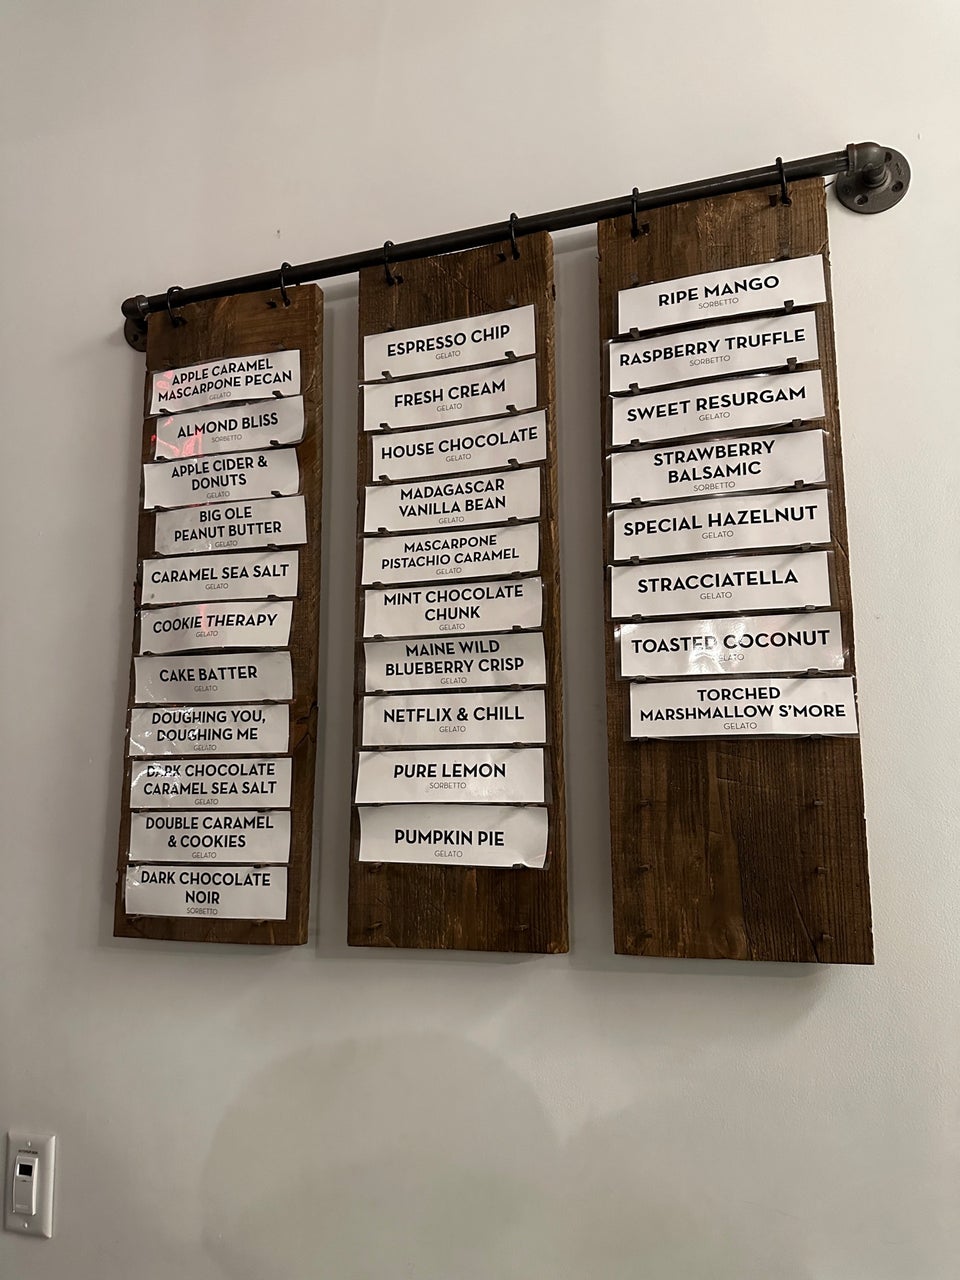 APPLE CARAMEL
MASCARPONE PECAN
GELATO
ALMOND BLISS
SORBETTO
APPLE CIDER &
DONUTS
GELATO
BIG OLE
PEANUT BUTTER
GELATO
CARAMEL SEA SALT
GELATO
COOKIE THERAPY
GELATO
CAKE BATTER
GELATO
DOUGHING YOU,
DOUGHING ME
GELATO
DARK CHOCOLATE
CARAMEL SEA SALT
GELATO
DOUBLE CARAMEL
& COOKIES
GELATO
DARK CHOCOLATE
NOIR
SORBETTO
ESPRESSO CHIP
GELATO
FRESH CREAM
GELATO
HOUSE CHOCOLATE
GELATO
MADAGASCAR
VANILLA BEAN
GELATO
MASCARPONE
PISTACHIO CARAMEL
GELATO
MINT CHOCOLATE
CHUNK
GELATO
MAINE WILD
BLUEBERRY CRISP
GELATO
NETFLIX & CHILL
GELATO
PURE LEMON
SORBETTO
PUMPKIN PIE
GELATO
RIPE MANGO
SORBETTO
RASPBERRY TRUFFLE
SORBETTO
SWEET RESURGAM
GELATO
STRAWBERRY
BALSAMIC
SORBETTO
SPECIAL HAZELNUT
GELATO
STRACCIATELLA
GELATO
TOASTED COCONUT
GELATO
TORCHED
MARSHMALLOW S'MORE
GELATO